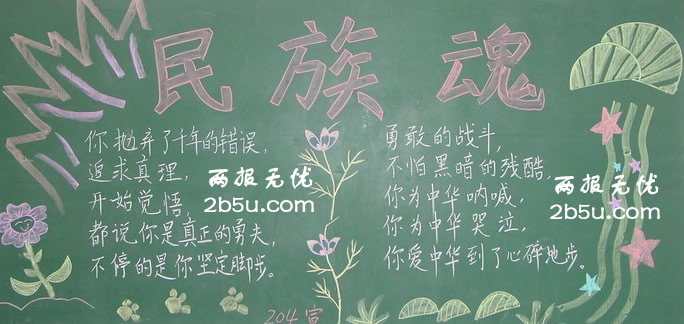 民族魂
你抛弃了千年的错误，
追求真理，
开始觉悟，
都说你是真正的勇夫，
不停的是你坚定脚步。
勇敢的战斗，
不怕黑暗的残酷，
你为中华呐喊，
你为中华哭泣，
你爱中华到了心碎地步。
两报无忧
2b5u.com
两报无忧
2b5u.com
204宣